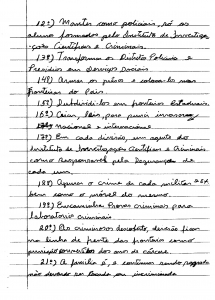 12º) Manter como policiais, só os
alunos formados pelo Instituto de Investiga-
ções Científicas e Criminais.
13º) Transforme os Distritos Policiais e
Presídios em Serviços Sociais
14º) Armar os
fronteiras do País
15º) Subdividi-los em fronteiras Estaduais.
16º) Criar, Leis, para punir invasores,
nacional e internacional
17º) Em cada divisão, um agente do
Instituto de Investigações Científicas e Criminais
como responsável pela Segurança de
cada um.
18º) o crime de cada militar
bem como o móvel do mesmo.
19º) Encaminhe Provas criminais para
Laboratório criminais
20º) Os criminosos descoberto, deverão ficar
na linha de frente das fronteiras como
dos anos de cárcere.
21º) A família é, e continua sendo sagrada
não devendo ser tocada ou incriminada